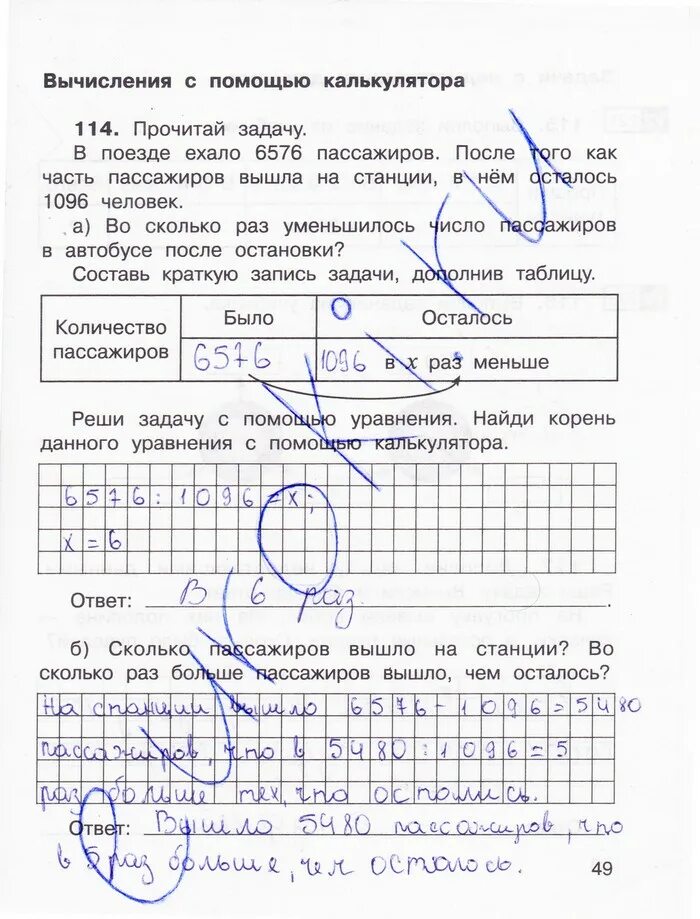 Вычисления с помощью калькулятора
114. Прочитай задачу.
В поезде ехало 6576 пассажиров. После того как
часть пассажиров вышла на станции, в нём осталось
1096 человек.
а) Во сколько раз уменьшилось число пассажиров
в автобусе после остановки?
Составь краткую запись задачи, дополнив таблицу.
Количество пассажиров
Было
Осталось
6576
1096 в х раз меньше
Реши задачу с помощью уравнения. Найди корень
данного уравнения с помощью калькулятора.
6576:1096=х;
х=6
Ответ: В 6 раз.
б) Сколько пассажиров вышло на станции? Во
сколько раз больше пассажиров вышло, чем осталось?
На станции вышло 6576-1096=5480
пассажиров, что в 5480:1096=5
раз больше тех, что остались.
Ответ: Вышло 5480 пассажиров, что
в 5 раз больше, чем осталось.
49